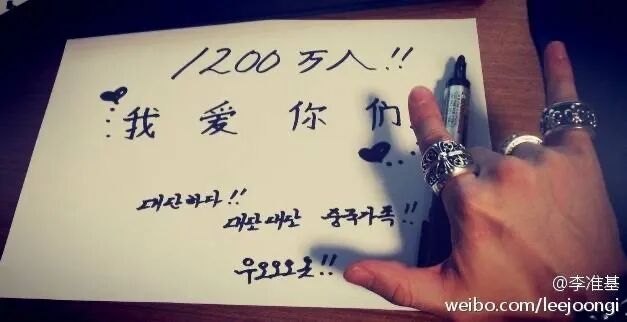 1200万人!!
我 爱 你 们
대단하다!!
대단대단 중국가족!!
우오오오옷!!
@李准基
weibo.com/leejoongi